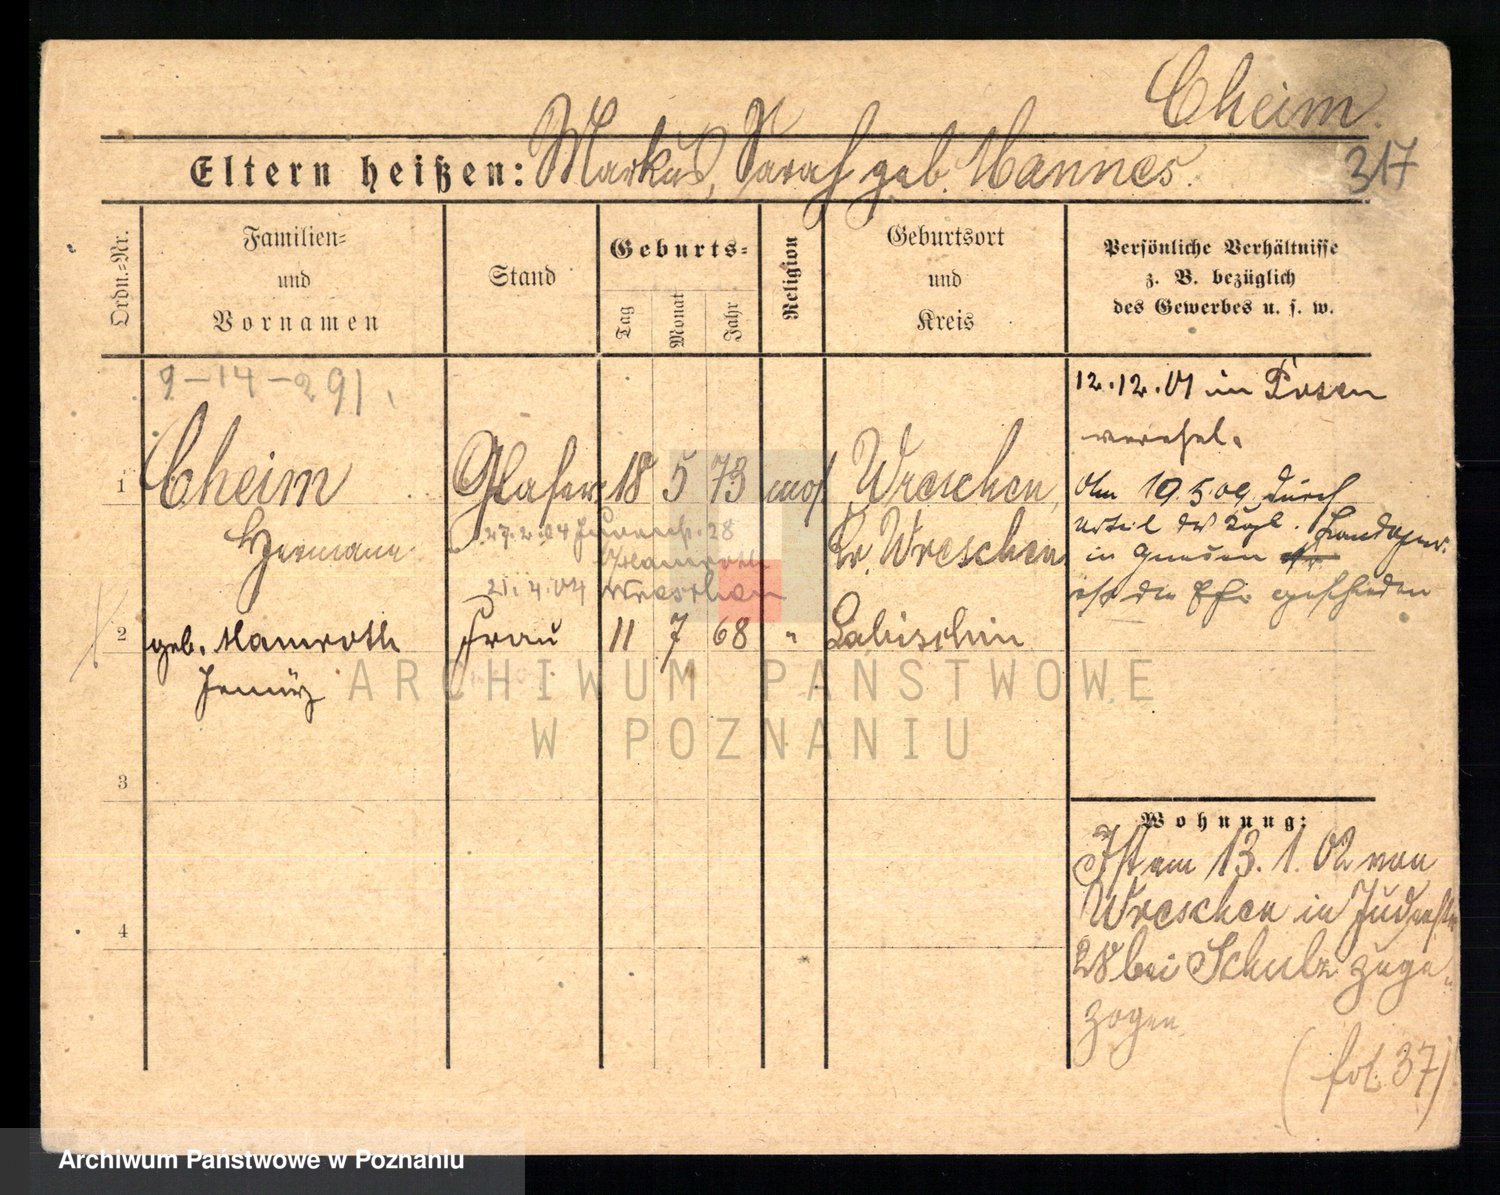 Cheim.
Eltern heißen: Markus, Sarah geb. Mannes.
317
Ordn.-Nr.
Familien-
und
Vornamen
Stand
Geburts-
Tag
Monat
Jahr
Religion
Geburtsort
und
Kreis
Persönliche Verhältnisse
z. B. bezüglich
des Gewerbes u. s. w.
9-14-291
12.12.01 in Posen
verehel.
1 Cheim Glaser 18 5 73 mos. Wreschen,
Hermann Kr. Wreschen
27.2.04 28
Hamroth
21.4.04 Wreschen
Am 19.5.09 durch
Urteil des Kgl. Landger.
in Gnesen
ist die Ehe geschieden
2 geb. Hamroth Frau 11 7 68 " Labischin
3
4
Wohnung:
Ist am 13.1.02 von
Wreschen in Judenstr.
28 bei Schulz zuge-
zogen
(fol. 37)
ARCHIWUM PAŃSTWOWE
W POZNANIU
Archiwum Państwowe w Poznaniu